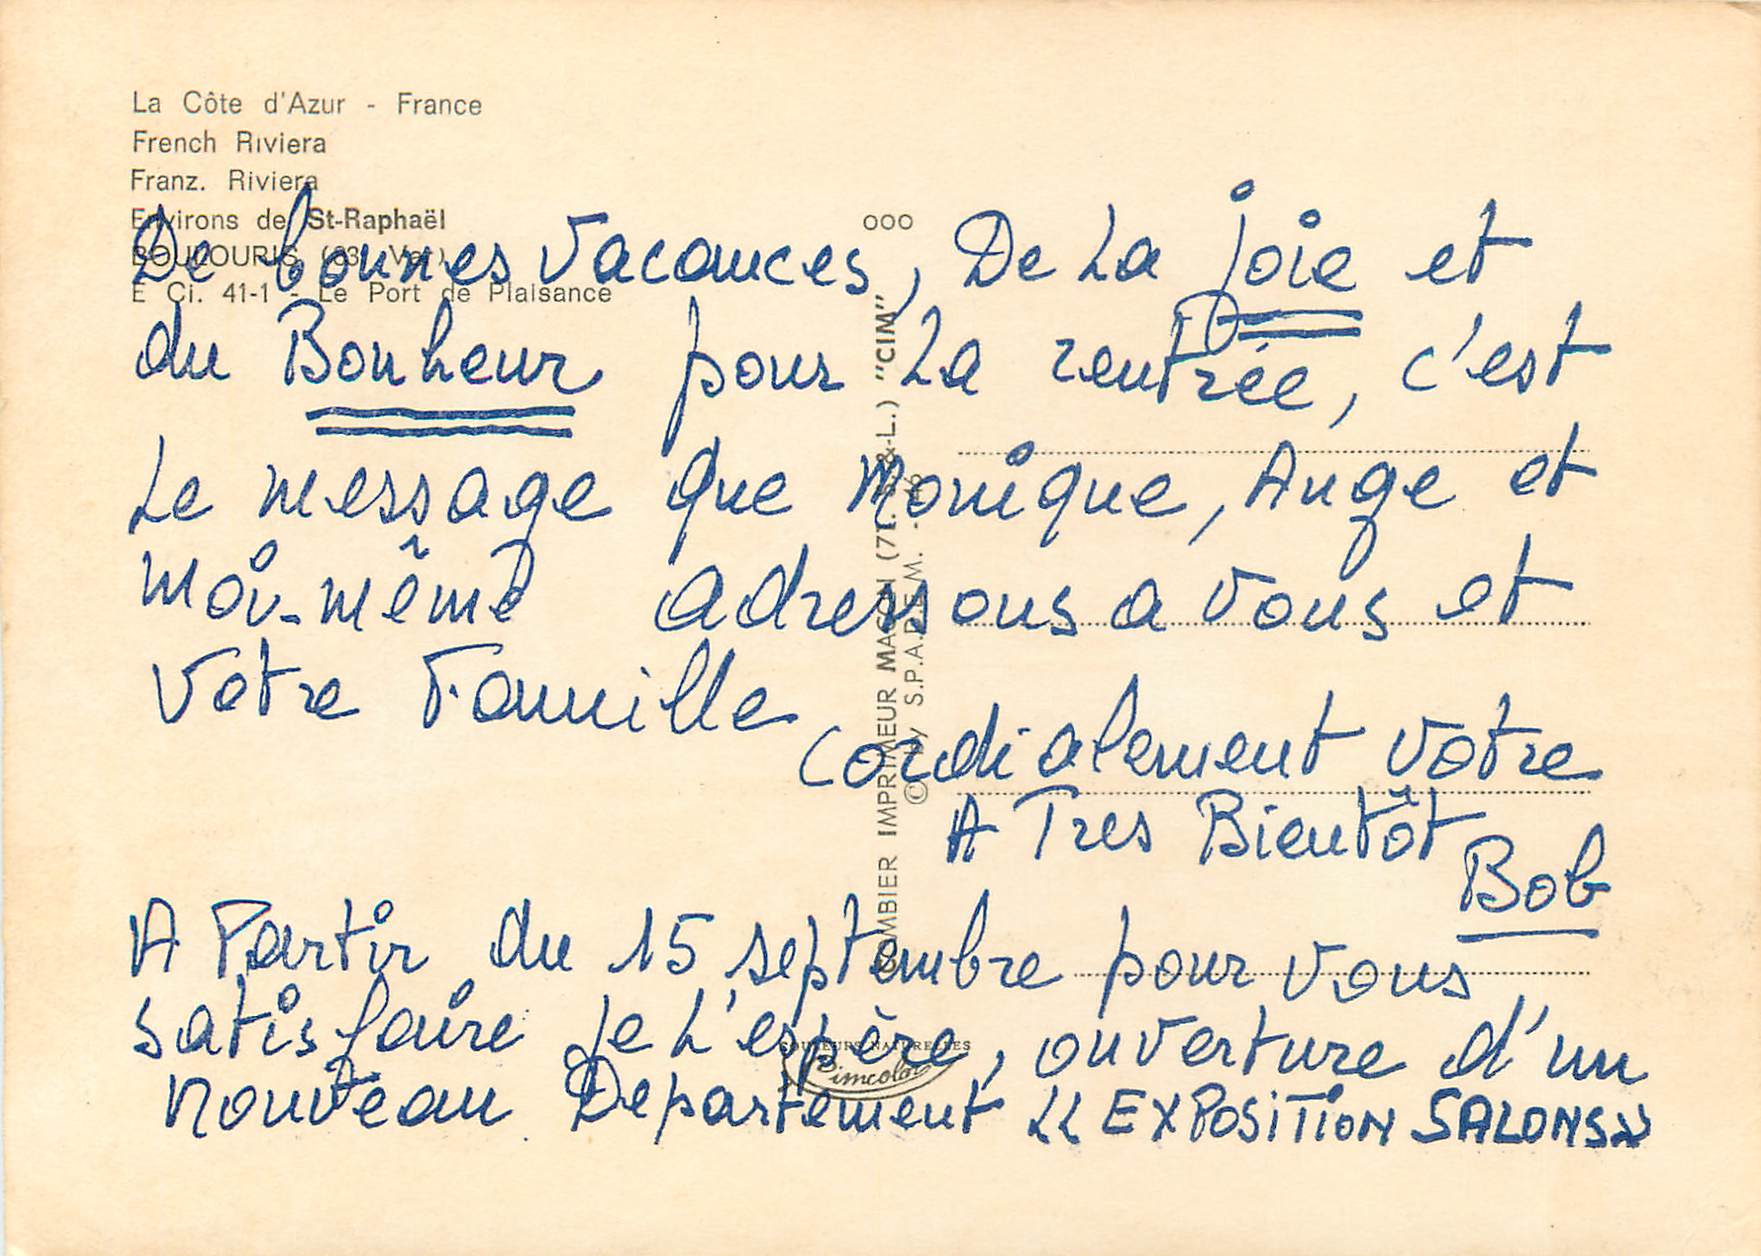 La Côte d'Azur - France
French Riviera
Franz. Riviera
Environs de St-Raphaël
BOULOURIS (83 - Var)
E Ci. 41-1 - Le Port de Plaisance
De bonnes vacances, De La joie et
du Bonheur pour La rentrée, c'est
Le message que Monique, Ange et
moi-même adressons a vous et
votre Famille
Cordialement votre
A Tres Bientôt
Bob
A Partir du 15 septembre pour vous
satisfaire je L'espère, ouverture d'un
nouveau Departement « EXPOSITION SALONS »
COMBIER IMPRIMEUR MACON (71. S.-&-L.) "CIM"
© by S.P.A.D.E.M.
COULEURS NATURELLES
Cimcolor